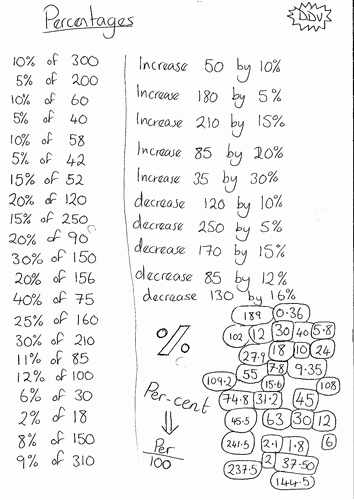 Percentages
DDV
10% of 300
5% of 200
10% of 60
5% of 40
10% of 58
5% of 42
15% of 52
20% of 120
15% of 250
20% of 90
30% of 150
20% of 156
40% of 75
25% of 160
30% of 210
11% of 85
12% of 100
6% of 30
2% of 18
8% of 150
9% of 310
Increase 50 by 10%
Increase 180 by 5%
Increase 210 by 15%
Increase 85 by 20%
Increase 35 by 30%
decrease 120 by 10%
decrease 250 by 5%
decrease 170 by 15%
decrease 85 by 12%
decrease 130 by 16%
%
Per-cent
Per
100
189 0.36
102 12 30 40 5.8
27.9 18 10 24
55 7.8 9.35
109.2 15.6 108
74.8 31.2 45
45.5 63 30 12
241.5 2.1 1.8 6
237.5 2 37.50
144.5